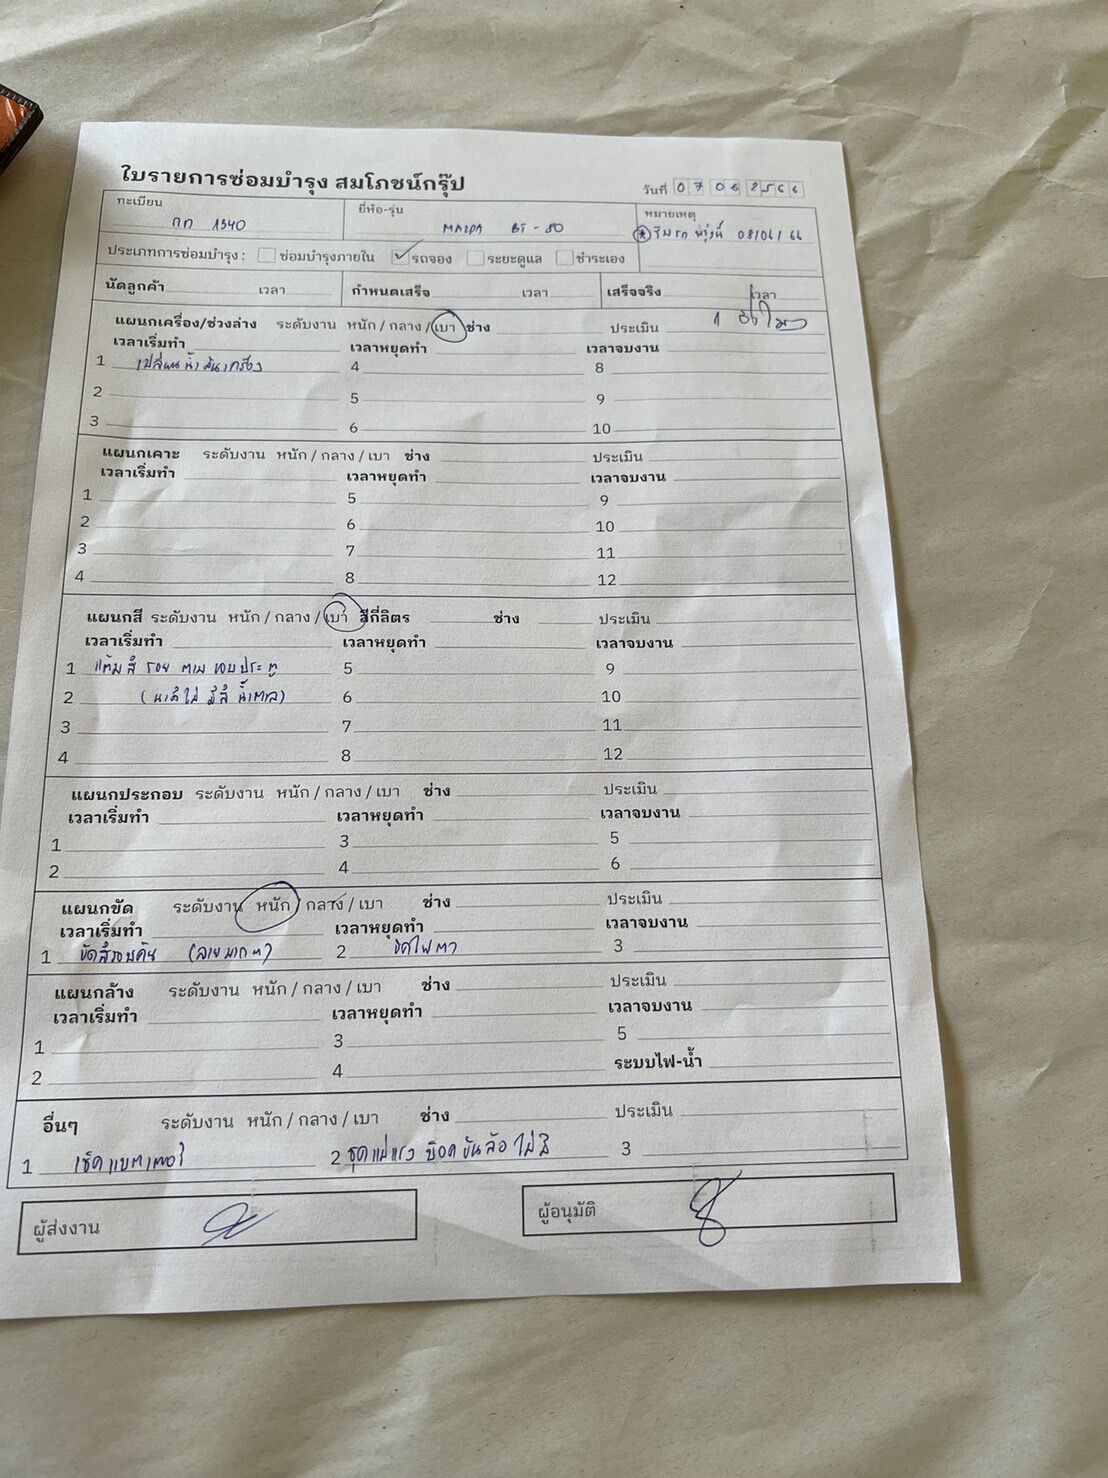 ใบรายการซ่อมบำรุง สมโภชน์กรุ๊ป
วันที่ 07 06 2566
ทะเบียน ยี่ห้อ-รุ่น หมายเหตุ
กท 1340 MAZDA BT-50 รับรถ พรุ่งนี้ 08/06/66
ประเภทการซ่อมบำรุง : ซ่อมบำรุงภายใน รถจอง ระยะดูแล ชำระเอง
นัดลูกค้า เวลา กำหนดเสร็จ เวลา เสร็จจริง เวลา
แผนกเครื่อง/ช่วงล่าง ระดับงาน หนัก / กลาง / เบา ช่าง ประเมิน 1 ชั่วโมง
เวลาเริ่มทำ เวลาหยุดทำ เวลาจบงาน
1 เปลี่ยนน้ำมันเครื่อง 4 8
2 5 9
3 6 10
แผนกเคาะ ระดับงาน หนัก / กลาง / เบา ช่าง ประเมิน
เวลาเริ่มทำ เวลาหยุดทำ เวลาจบงาน
1 5 9
2 6 10
3 7 11
4 8 12
แผนกสี ระดับงาน หนัก / กลาง / เบา สีกี่ลิตร ช่าง ประเมิน
เวลาเริ่มทำ เวลาหยุดทำ เวลาจบงาน
1 แต้มสี รอย ตาม ขอบประตู 5 9
2 สี น้ำตาล) 6 10
3 7 11
4 8 12
แผนกประกอบ ระดับงาน หนัก / กลาง / เบา ช่าง ประเมิน
เวลาเริ่มทำ เวลาหยุดทำ เวลาจบงาน
1 3 5
2 4 6
แผนกขัด ระดับงาน หนัก / กลาง / เบา ช่าง ประเมิน
เวลาเริ่มทำ เวลาหยุดทำ เวลาจบงาน
1 ขัดสีรอบคัน (ลายมากๆ) 2 ขัดไฟตา 3
แผนกล้าง ระดับงาน หนัก / กลาง / เบา ช่าง ประเมิน
เวลาเริ่มทำ เวลาหยุดทำ เวลาจบงาน
1 3 5
2 4 ระบบไฟ-น้ำ
อื่นๆ ระดับงาน หนัก / กลาง / เบา ช่าง ประเมิน
1 เช็คแบตเตอรี่ 2 ชุดแม่แรง บ๊อคขันล้อ ไม่มี 3
ผู้ส่งงาน ผู้อนุมัติ